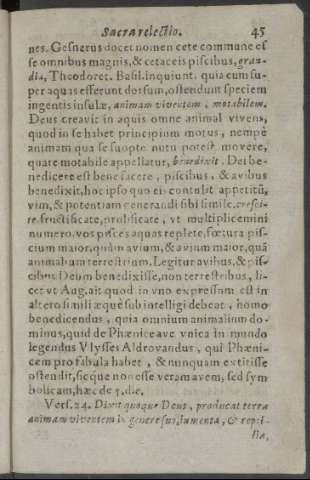 Sacra relectio. 45
nes. Gesnerus docet nomen cete commune es
se omnibus magnis, & cetaceis piscibus, gran-
dia, Theodoret. Basil. inquiunt. quia cum su-
per aquas efferunt dorsum, ostendunt speciem
ingentis insulæ, animam viventem, motabilem.
Deus creavit in aquis omne animal vivens,
quod in se habet principium motus, nempè
animam qua se suopte nutu potest movere,
quare motabile appellatur, benedixit. Dei be-
nedicere est bene facere, piscibus, & avibus
benedixit, hoc ipso quo eis contulit appetitũ,
vim, & potentiam generandi sibi simile. cresci-
te. fructificate, prolificate, vt multiplicemini
numero. vos pisces aquas replete, fœtura pis-
cium maior, quàm avium, & avium maior, quã
animalium terrestrium. Legitur avibus, & pis-
cibus Deum benedixisse, non terrestribus, li-
cet vt Aug. ait quod in vno expressum est in
altero simili æquè subintelligi debeat, homo
benedicendus, quia omnium animalium do-
minus, quid de Phœnice ave vnica in mundo
legendus Vlysses Aldrovandus, qui Phœni-
cem pro fabula habet, & nunquam extitisse
ostendit, sicque non esse veram avem, sed sym
bolicam, hæc de 5. die.
Vers. 24. Dixit quoque Deus, producat terra
animam viventem in genere suo, iumenta, & repti-
lia,